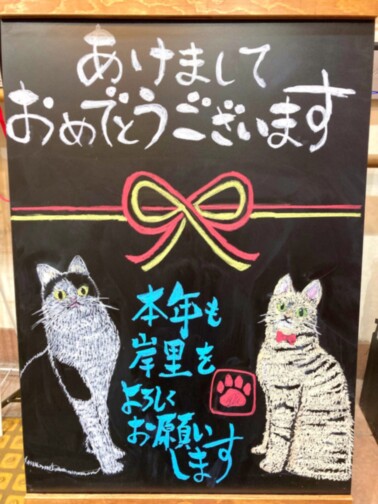 あけまして
おめでとうございます
本年も
岸里を
よろしく
お願い
します